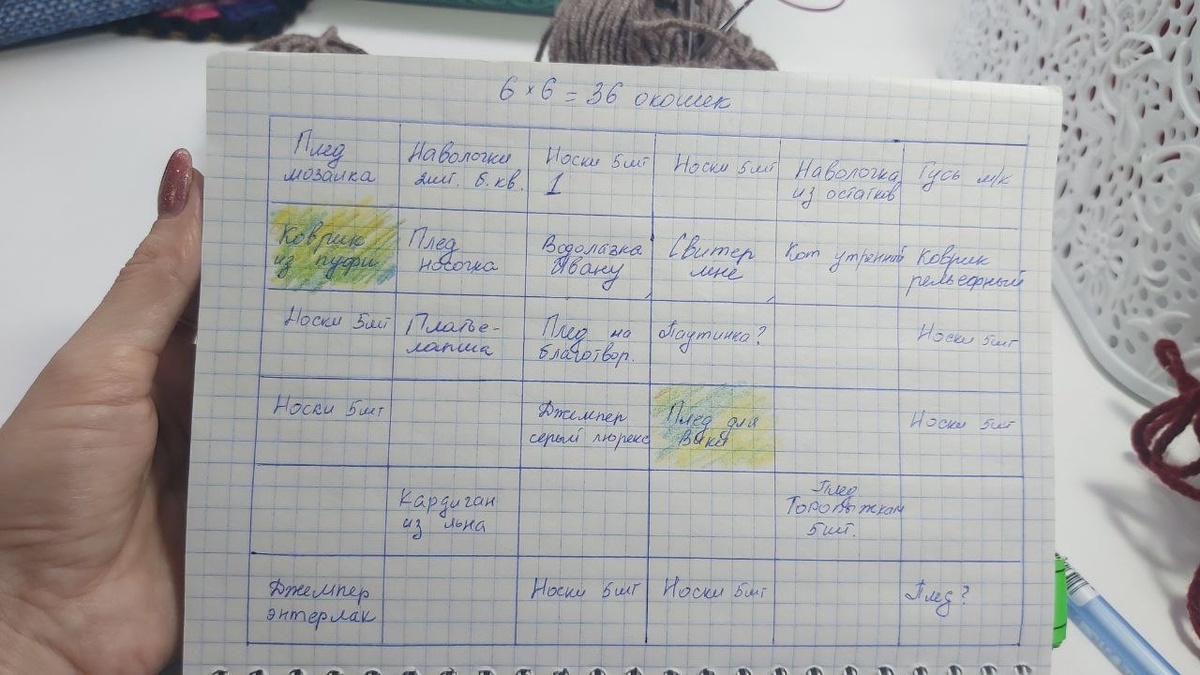 6 × 6 = 36 окошек
Плед
мозаика
Наволочки
2шт. б. кв.
Носки 5шт
1
Носки 5шт
Наволочка
из остатков
Гусь м/к
Коврик
из пуфи
Плед
носочка
Водолазка
Ивану
Свитер
мне
Кот утренний
Коврик
рельефный
Носки 5шт
Платье-
лапша
Плед на
благотвор.
Паутинка?
Носки 5шт
Носки 5шт
Джемпер
серый люрекс
Плед для
Вики
Носки 5шт
Кардиган
из льна
Плед
Торопыжкам
5шт.
Джемпер
энтерлак
Носки 5шт
Носки 5шт
Плед?